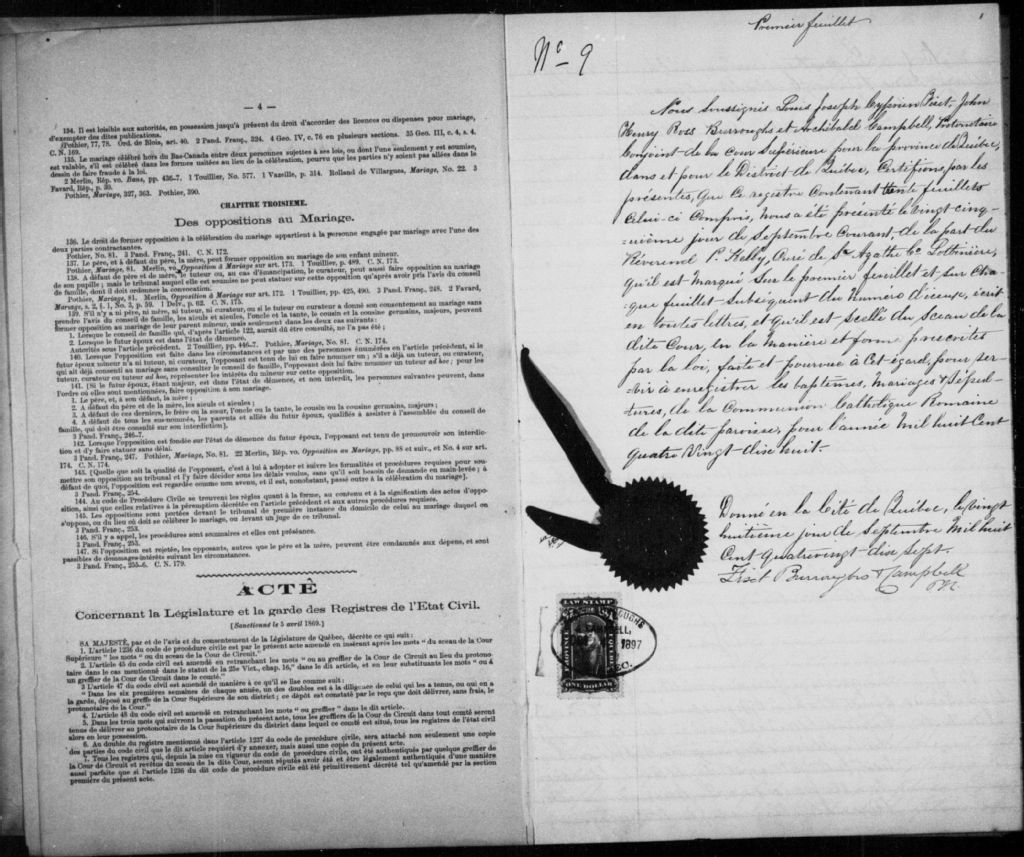 — 4 —
134. Il est loisible aux autorités, en possession jusqu'à présent du droit d'accorder des licences ou dispenses pour mariage,
d'exempter des dites publications.
Pothier, 77, 78. Ord. de Blois, art. 40. 2 Pand. Franç., 324. 4 Geo. IV, c. 76 en plusieurs sections. 35 Geo. III, c. 4, s. 4.
C. N. 169.
135. Le mariage célébré hors du Bas-Canada entre deux personnes sujettes à ses lois, ou dont l'une seulement y est soumise,
est valable, s'il est célébré dans les formes usitées au lieu de la célébration, pourvu que les parties n'y soient pas allées dans le
dessein de faire fraude à la loi.
2 Merlin, Rép. vo. Bans, pp. 436-7. 1 Rép. No. 577. 1 Vazeille, p. 314. Rolland de Villargues, Mariage, No. 22. 3
Favard, Rép., p. 30.
Pothier, Mariage, 327, 363. Pothier, 390.
CHAPITRE TROISIEME.
Des oppositions au Mariage.
136. Le droit de former opposition à la célébration du mariage appartient à la personne engagée par mariage avec l'une des
deux parties contractantes.
Pothier, No. 81. 3 Pand. Franç., 241. C. N. 172.
137. Le père, et à défaut du père, la mère, peut former opposition au mariage de son enfant mineur.
Pothier, Mariage, 81. Merlin, vo. Opposition à Mariage sur art. 173. 1 Touillier, p. 489. C. N. 173.
138. A défaut de père et de mère, le tuteur ou, au cas d'émancipation, le curateur, peut aussi faire opposition au mariage
de son pupille; mais le tribunal auquel elle est soumise ne peut statuer sur cette opposition qu'après avoir pris l'avis du conseil
de famille, dont il doit ordonner la convocation.
Pothier, Mariage, 81. Merlin, Opposition à Mariage sur art. 172. 1 Touillier, pp. 425, 490. 3 Pand. Franç., 248. 2 Favard,
Mariage, s. 2, §. 1, No. 3, p. 59. 1 Delv., p. 62. C. N. 175.
139. S'il n'y a ni père, ni mère, ni tuteur, ni curateur, ou si le tuteur ou curateur a donné son consentement au mariage sans
prendre l'avis du conseil de famille, les aïeuls et aïeules, l'oncle et la tante, le cousin et la cousine germains, majeurs, peuvent
former opposition au mariage de leur parent mineur, mais seulement dans les deux cas suivants:
1. Lorsque le conseil de famille qui, d'après l'article 122, aurait dû être consulté, ne l'a pas été;
2. Lorsque le futur époux est dans l'état de démence.
Autorités sous l'article précédent. 2 Touillier, pp. 446-7. Pothier, Mariage, No. 81. C. N. 174.
140. Lorsque l'opposition est faite dans les circonstances et par une des personnes énumérées en l'article précédent, si le
futur époux mineur n'a ni tuteur, ni curateur, l'opposant est tenu de lui en faire nommer un; s'il a déjà un tuteur, ou curateur,
qui ait déjà consenti au mariage sans consulter le conseil de famille, l'opposant doit lui faire nommer un tuteur ad hoc; pour les
tuteur, curateur ou tuteur ad hoc, représenter les intérêts du mineur sur cette opposition.
141. [Si le futur époux, étant majeur, est dans l'état de démence, et non interdit, les personnes suivantes peuvent, dans
l'ordre où elles sont mentionnées, faire opposition à son mariage.
1. Le père, et, à son défaut, la mère;
2. A défaut du père et de la mère, les aïeuls et aïeules;
3. A défaut de ces derniers, le frère ou la sœur, l'oncle ou la tante, le cousin ou la cousine germains, majeurs;
4. A défaut de tous les sus-nommés, les parents et alliés du futur époux, qualifiés à assister à l'assemblée du conseil de
famille, qui doit être consulté sur son interdiction].
3 Pand. Franç., 246-7.
142. Lorsque l'opposition est fondée sur l'état de démence du futur époux, l'opposant est tenu de promouvoir son interdic-
tion et d'y faire statuer sans délai.
3 Pand. Franç., 247. Pothier, Mariage, No. 81. 22 Merlin, Rép. vo. Opposition au Mariage, pp. 88 et suiv., et No. 4 sur art.
174. C. N. 174.
143. [Quelle que soit la qualité de l'opposant, c'est à lui à adopter et suivre les formalités et procédures requises pour sou-
mettre son opposition au tribunal et l'y faire décider sous les délais voulus, sans qu'il soit besoin de demande en main-levée; à
défaut de quoi, l'opposition est regardée comme non avenu, et il est, nonobstant, passé outre à la célébration du mariage].
3 Pand. Franç., 254.
144. Au code de Procédure Civile se trouvent les règles quant à la forme, au contenu et à la signification des actes d'oppo-
sition, ainsi que celles relatives à la péremption décrétée en l'article précédent et aux autres procédures requises.
145. Les oppositions sont portées devant le tribunal de première instance du domicile de celui au mariage duquel on
s'oppose, ou du lieu où doit se célébrer le mariage, ou devant un juge de ce tribunal.
3 Pand. Franç., 253.
146. S'il y a appel, les procédures sont sommaires et elles ont préséance.
3 Pand. Franç., 253.
147. Si l'opposition est rejetée, les opposants, autres que le père et la mère, peuvent être condamnés aux dépens, et sont
passibles de dommages-intérêts suivant les circonstances.
3 Pand. Franç., 255-6. C. N. 179.
ACTE
Concernant la Législature et la garde des Registres de l'Etat Civil.
[Sanctionné le 5 avril 1869.]
SA MAJESTÉ, par et de l'avis et du consentement de la Législature de Québec, décrète ce qui suit:
1. L'article 1236 du code de procédure civile est par le présent acte amendé en insérant après les mots "du sceau de la Cour
Supérieure" les mots "ou du sceau de la Cour de Circuit."
2. L'article 45 du code civil est amendé en retranchant les mots "ou au greffier de la Cour de Circuit au lieu du protono-
taire dans le cas mentionné dans le statut de la 25e Vict., chap. 16," dans le dit article, et en leur substituants les mots "ou à
un greffier de la Cour de Circuit dans le comté."
3 L'article 47 du code civil est amendé de manière à ce qu'il se lise comme suit:
"Dans les six premières semaines de chaque année, un des doubles est à la diligence de celui qui les a tenus, ou qui en a
la garde, déposé au greffe de la Cour Supérieure de son district; ce dépôt est constaté par le reçu que doit délivrer, sans frais, le
protonotaire de la Cour."
4. L'article 48 du code civil est amendé en retranchant les mots "ou greffier" dans le dit article.
5. Dans les trois mois qui suivront la passation du présent acte, tous les greffiers de la Cour de Circuit dans tout comté seront
tenus de délivrer au protonotaire de la Cour Supérieure du district dans lequel ce comté est situé, tous les registres de l'état civil
alors en leur possession.
6. Au double du registre mentionné dans l'article 1237 du code de procédure civile, sera attaché non seulement une copie
des parties du code civil que le dit article requiert d'y annexer, mais aussi une copie du présent acte.
7. Tous les registres qui, depuis la mise en vigueur du code de procédure civile, ont été authentiqués par quelque greffier de
la Cour de Circuit et revêtus du sceau de la dite Cour, seront réputés avoir été et être légalement authentiqués d'une manière
aussi parfaite que si l'article 1236 du dit code de procédure civile eût été primitivement décrété tel qu'amendé par la section
première du présent acte.
Premier feuillet
1
No 9
Nous Soussignés Louis Joseph Cyprien Fiset, John
Henry Ross Burroughs et Archibald Campbell, Protonotaire
Conjoint de la cour Supérieure pour la province de Québec,
dans et pour le District de Québec, Certifions, par les
présentes, que ce registre Contenant trente feuillets
Celui-ci Compris, nous a été présenté le vingt cinq-
-uième jour de Septembre Courant, de la part du
Révérend P. Kelly, Curé de Ste Agathe Co. Lotbinière,
qu'il est marqué Sur le premier feuillet et sur cha
que feuillet subséquent du Numéro d'icenx, écrit
en toutes lettres, et qu'il est scellé du Sceau de la
dite Cour, en la manière et forme prescrites
par la loi, faite et pourvue à cet égard, pour ser-
vir à enregistrer les baptêmes, Mariages & Sépul-
tures, de la Communion Catholique Romaine
de la dite paroisse, pour l'année Mil huit Cent
Quatre Vingt dix huit.
Donné en la Cité de Québec, le vingt
huitième jour de Septembre Mil huit
Cent Quatrevingt-dix Sept.
Fiset Burroughs & Campbell
P.C.S.
LAW STAMP
PROVINCE
QUEBEC
ONE DOLLAR
1897